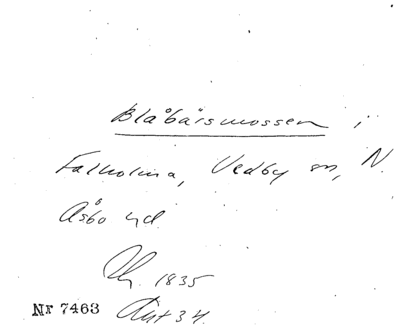 Blåbärsmossen i
Falholma, Vedby sn, N.
Åsbo hd.
1835
Nr 7463 Akt 34.